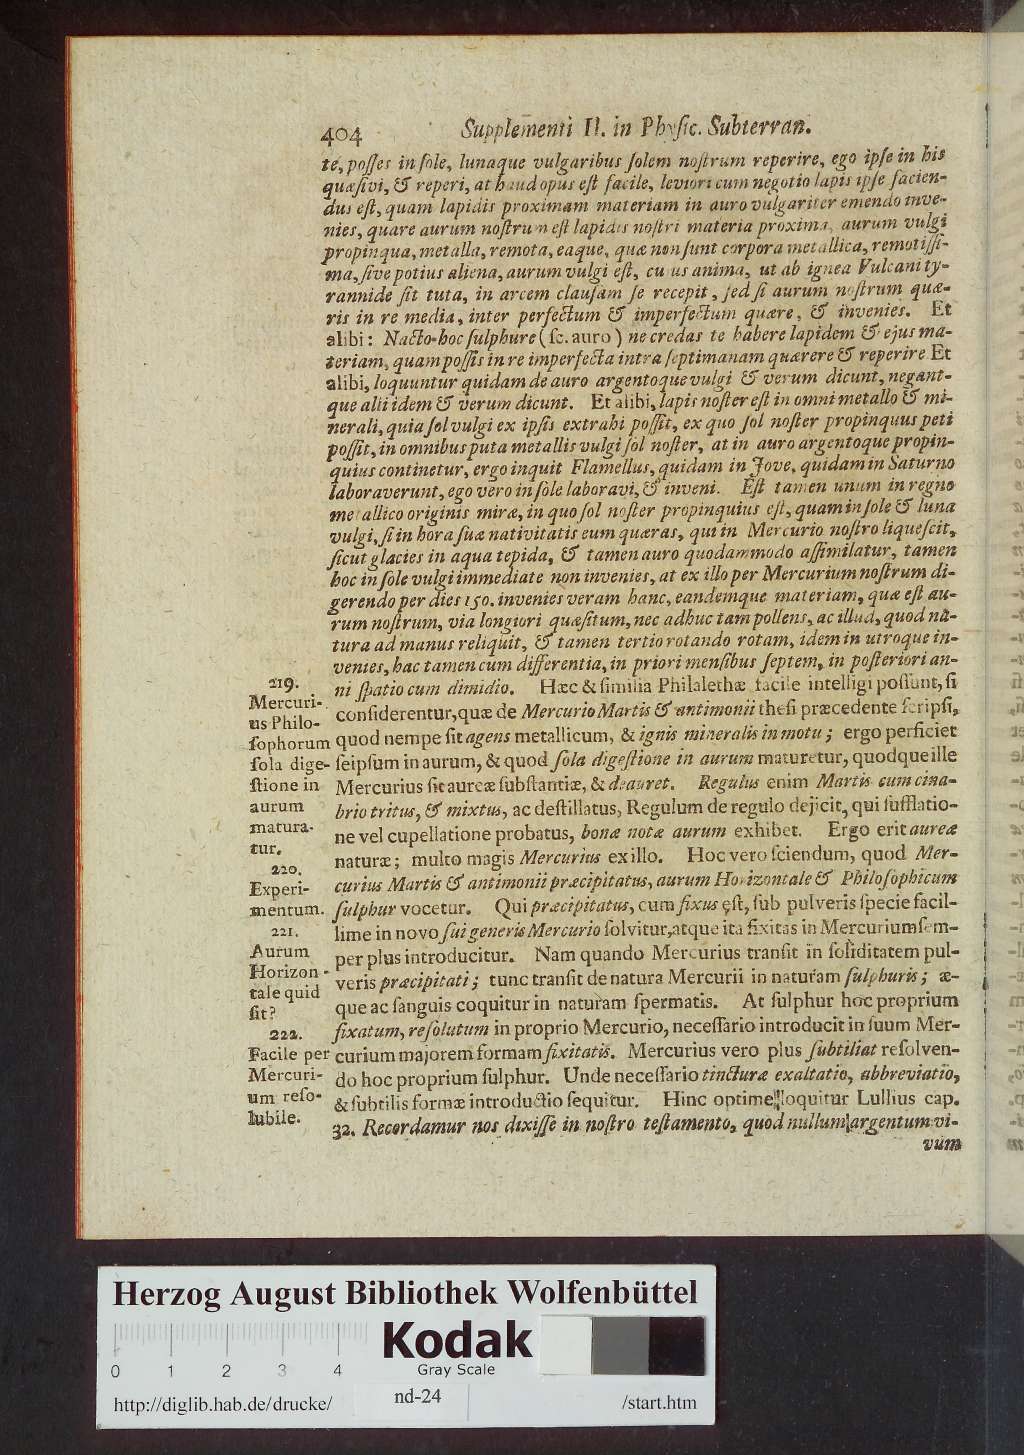 404 Supplementi II. in Physic. Subterran.
te, posses in sole, lunaque vulgaribus solem nostrum reperire, ego ipse in his
quæsivi, & reperi, at haud opus est facile, leviori cum negotio lapis ipse facien-
dus est, quam lapidis proximam materiam in auro vulgariter emendo inve-
nies, quare aurum nostrum est lapidis nostri materia proxima, aurum vulgi
propinqua, metalla, remota, eaque, quæ non sunt corpora metallica, remotissi-
ma, sive potius aliena, aurum vulgi est, cujus anima, ut ab ignea Vulcani ty-
rannide sit tuta, in arcem clausam se recepit, sed si aurum nostrum quæ-
ris in re media, inter perfectum & imperfectum quære, & invenies. Et
alibi: Nacto hoc sulphure (sc. auro) ne credas te habere lapidem & ejus ma-
teriam, quam possis in re imperfecta intra septimanam quærere & reperire Et
alibi, loquuntur quidam de auro argentoque vulgi & verum dicunt, negant-
que alii idem & verum dicunt. Et alibi, lapis noster est in omni metallo & mi-
nerali, quia sol vulgi ex ipsis extrahi possit, ex quo sol noster propinquus peti
possit, in omnibus puta metallis vulgi sol noster, at in auro argentoque propin-
quius continetur, ergo inquit Flamellus, quidam in Jove, quidam in Saturno
laboraverunt, ego vero in sole laboravi, & inveni. Est tamen unum in regno
metallico originis miræ, in quo sol noster propinquius est, quam in sole & luna
vulgi, si in hora suæ nativitatis eum quæras, qui in Mercurio nostro liquescit,
sicut glacies in aqua tepida, & tamen auro quodammodo assimilatur, tamen
hoc in sole vulgi immediate non invenies, at ex illo per Mercurium nostrum di-
gerendo per dies 150. invenies veram hanc, eandemque materiam, quæ est au-
rum nostrum, via longiori quæsitum, nec adhuc tam pollens, ac illud, quod na-
tura ad manus reliquit, & tamen tertio rotando rotam, idem in utroque in-
venies, hac tamen cum differentia, in priori mensibus septem, in posteriori an-
ni spatio cum dimidio. Hæc & similia Philalethæ facile intelligi possunt, si
considerentur, quæ de Mercurio Martis & antimonii thesi præcedente scripsi,
quod nempe sit agens metallicum, & ignis mineralis in motu; ergo perficiet
seipsum in aurum, & quod sola digestione in aurum maturetur, quodque ille
Mercurius sit aureæ substantiæ, & deauret. Regulus enim Martis cum cina-
brio tritus, & mixtus, ac destillatus, Regulum de regulo dejicit, qui sufflatio-
ne vel cupellatione probatus, bonæ notæ aurum exhibet. Ergo erit aureæ
naturæ; multo magis Mercurius ex illo. Hoc vero sciendum, quod Mer-
curius Martis & antimonii præcipitatus, aurum Horizontale & Philosophicum
sulphur vocetur. Qui præcipitatus, cum fixus est, sub pulveris specie facil-
lime in novo sui generis Mercurio solvitur, atque ita fixitas in Mercurium sem-
per plus introducitur. Nam quando Mercurius transit in soliditatem pul-
veris præcipitati; tunc transit de natura Mercurii in naturam sulphuris; æ-
que ac sanguis coquitur in naturam spermatis. At sulphur hoc proprium
fixatum, resolutum in proprio Mercurio, necessario introducit in suum Mer-
curium majorem formam fixitatis. Mercurius vero plus subtiliat resolven-
do hoc proprium sulphur. Unde necessario tincturæ exaltatio, abbreviatio,
& subtilis formæ introductio sequitur. Hinc optime loquitur Lullius cap.
32. Recordamur nos dixisse in nostro testamento, quod nullum argentum vi-
vum
219.
Mercuri-
us Philo-
sophorum
sola dige-
stione in
aurum
matura-
tur.
220.
Experi-
mentum.
221.
Aurum
Horizon-
tale quid
sit?
222.
Facile per
Mercuri-
um reso-
lubile.
Herzog August Bibliothek Wolfenbüttel
Kodak
Gray Scale
0 1 2 3 4
http://diglib.hab.de/drucke/ nd-24 /start.htm